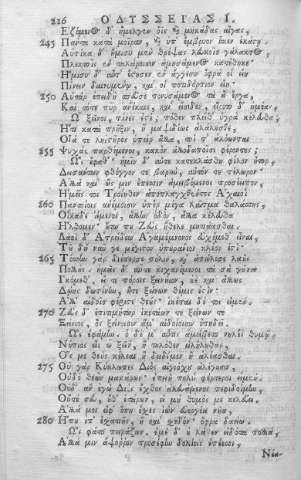 226 ΟΔΥΣΣΕΙΑΣ Ι.
Ἑζόμενος δ' ἤμελγεν ὄϊς καὶ μηκάδας αἶγας,
245 Πάντα κατὰ μοῖραν, καὶ ὑπ' ἔμβρυον ἧκεν ἑκάστῃ.
Αὐτίκα δ' ἥμισυ μὲν θρέψας λευκοῖο γάλακτος,
Πλεκτοῖς ἐν ταλάροισιν ἀμησάμενος κατέθηκε·
Ἥμισυ δ' αὖτ' ἔστησεν ἐν ἄγγεσιν ὄφρα οἱ εἴη
Πίνειν αἰνυμένῳ, καί οἱ ποτιδόρπιον εἴη.
250 Αὐτὰρ ἐπειδὴ σπεῦσε πονησάμενος τὰ ἃ ἔργα,
Καὶ τότε πῦρ ἀνέκαιε, καὶ εἴσιδεν, εἴρετο δ' ἡμέας·
Ὦ ξεῖνοι, τίνες ἐστέ; πόθεν πλεῖθ' ὑγρὰ κέλευθα;
Ἤ τι κατὰ πρῆξιν, ἢ μαψιδίως ἀλάλησθε,
Οἷά τε ληϊστῆρες ὑπεὶρ ἅλα, τοί τ' ἀλόωνται
255 Ψυχὰς παρθέμενοι, κακὸν ἀλλοδαποῖσι φέροντες;
Ὣς ἔφαθ'· ἡμῖν δ' αὖτε κατεκλάσθη φίλον ἦτορ,
Δεισάντων φθόγγον τε βαρὺν, αὐτόν τε πέλωρον.
Ἀλλὰ καὶ ὥς μιν ἔπεσσιν ἀμειβόμενος προσέειπον,
Ἡμεῖς τοι Τροίηθεν ἀποπλαγχθέντες Ἀχαιοὶ
260 Παντοίοις ἀνέμοισιν ὑπὲρ μέγα λαῖτμα θαλάσσης,
Οἴκαδε ἱέμενοι, ἄλλην ὁδὸν, ἄλλα κέλευθα
Ἤλθομεν· οὕτω που Ζεὺς ἤθελε μητίσασθαι.
Λαοὶ δ' Ἀτρείδεω Ἀγαμέμνονος εὐχόμεθ' εἶναι,
Τοῦ δὴ νῦν γε μέγιστον ὑπουράνιον κλέος ἐστί·
265 Τόσσην γὰρ διέπερσε πόλιν, καὶ ἀπώλεσε λαοὺς
Πολλούς. ἡμεῖς δ' αὖτε κιχανόμενοι τὰ σὰ γοῦνα
Ἱκόμεθ', εἴ τι πόροις ξεινήιον, ἠὲ καὶ ἄλλως
Δῴης δωτίνην, ἥτε ξείνων θέμις ἐστίν·
Ἀλλ' αἰδεῖο φέριστε θεούς· ἱκέται δέ τοι εἰμέν.
270 Ζεὺς δ' ἐπιτιμήτωρ ἱκετάων τε ξείνων τε
Ξείνιος, ὃς ξείνοισιν ἅμ' αἰδοίοισιν ὀπηδεῖ.
Ὣς ἐφάμην· ὁ δέ μ' αὖτις ἀμείβετο νηλέϊ θυμῷ,
Νήπιός εἰς ὦ ξεῖν', ἢ τηλόθεν εἰλήλουθας,
Ὅς με θεοὺς κέλεαι ἢ δειδίμεν ἢ ἀλέασθαι.
275 Οὐ γὰρ Κύκλωπες Διὸς αἰγιόχου ἀλέγουσιν,
Οὐδὲ θεῶν μακάρων· ἐπειὴ πολὺ φέρτεροί εἰμεν.
Οὐδ' ἂν ἐγὼ Διὸς ἔχθος ἀλευάμενος πεφιδοίμην
Οὔτε σεῦ, οὔθ' ἑτάρων, εἰ μὴ θυμός με κελεύοι.
Ἀλλά μοι εἴφ' ὅπῃ ἔσχες ἰὼν εὐεργέα νῆα,
280 Ἤ που ἐπ' ἐσχατιῆς, ἢ καὶ σχεδὸν, ὄφρα δαείω.
Ὣς φάτο πειράζων, ἐμὲ δ' οὐ λάθεν εἰδότα πολλὰ,
Ἀλλά μιν ἄψορρον προσέφην δολίοις ἐπέεσσι,
Νέα-